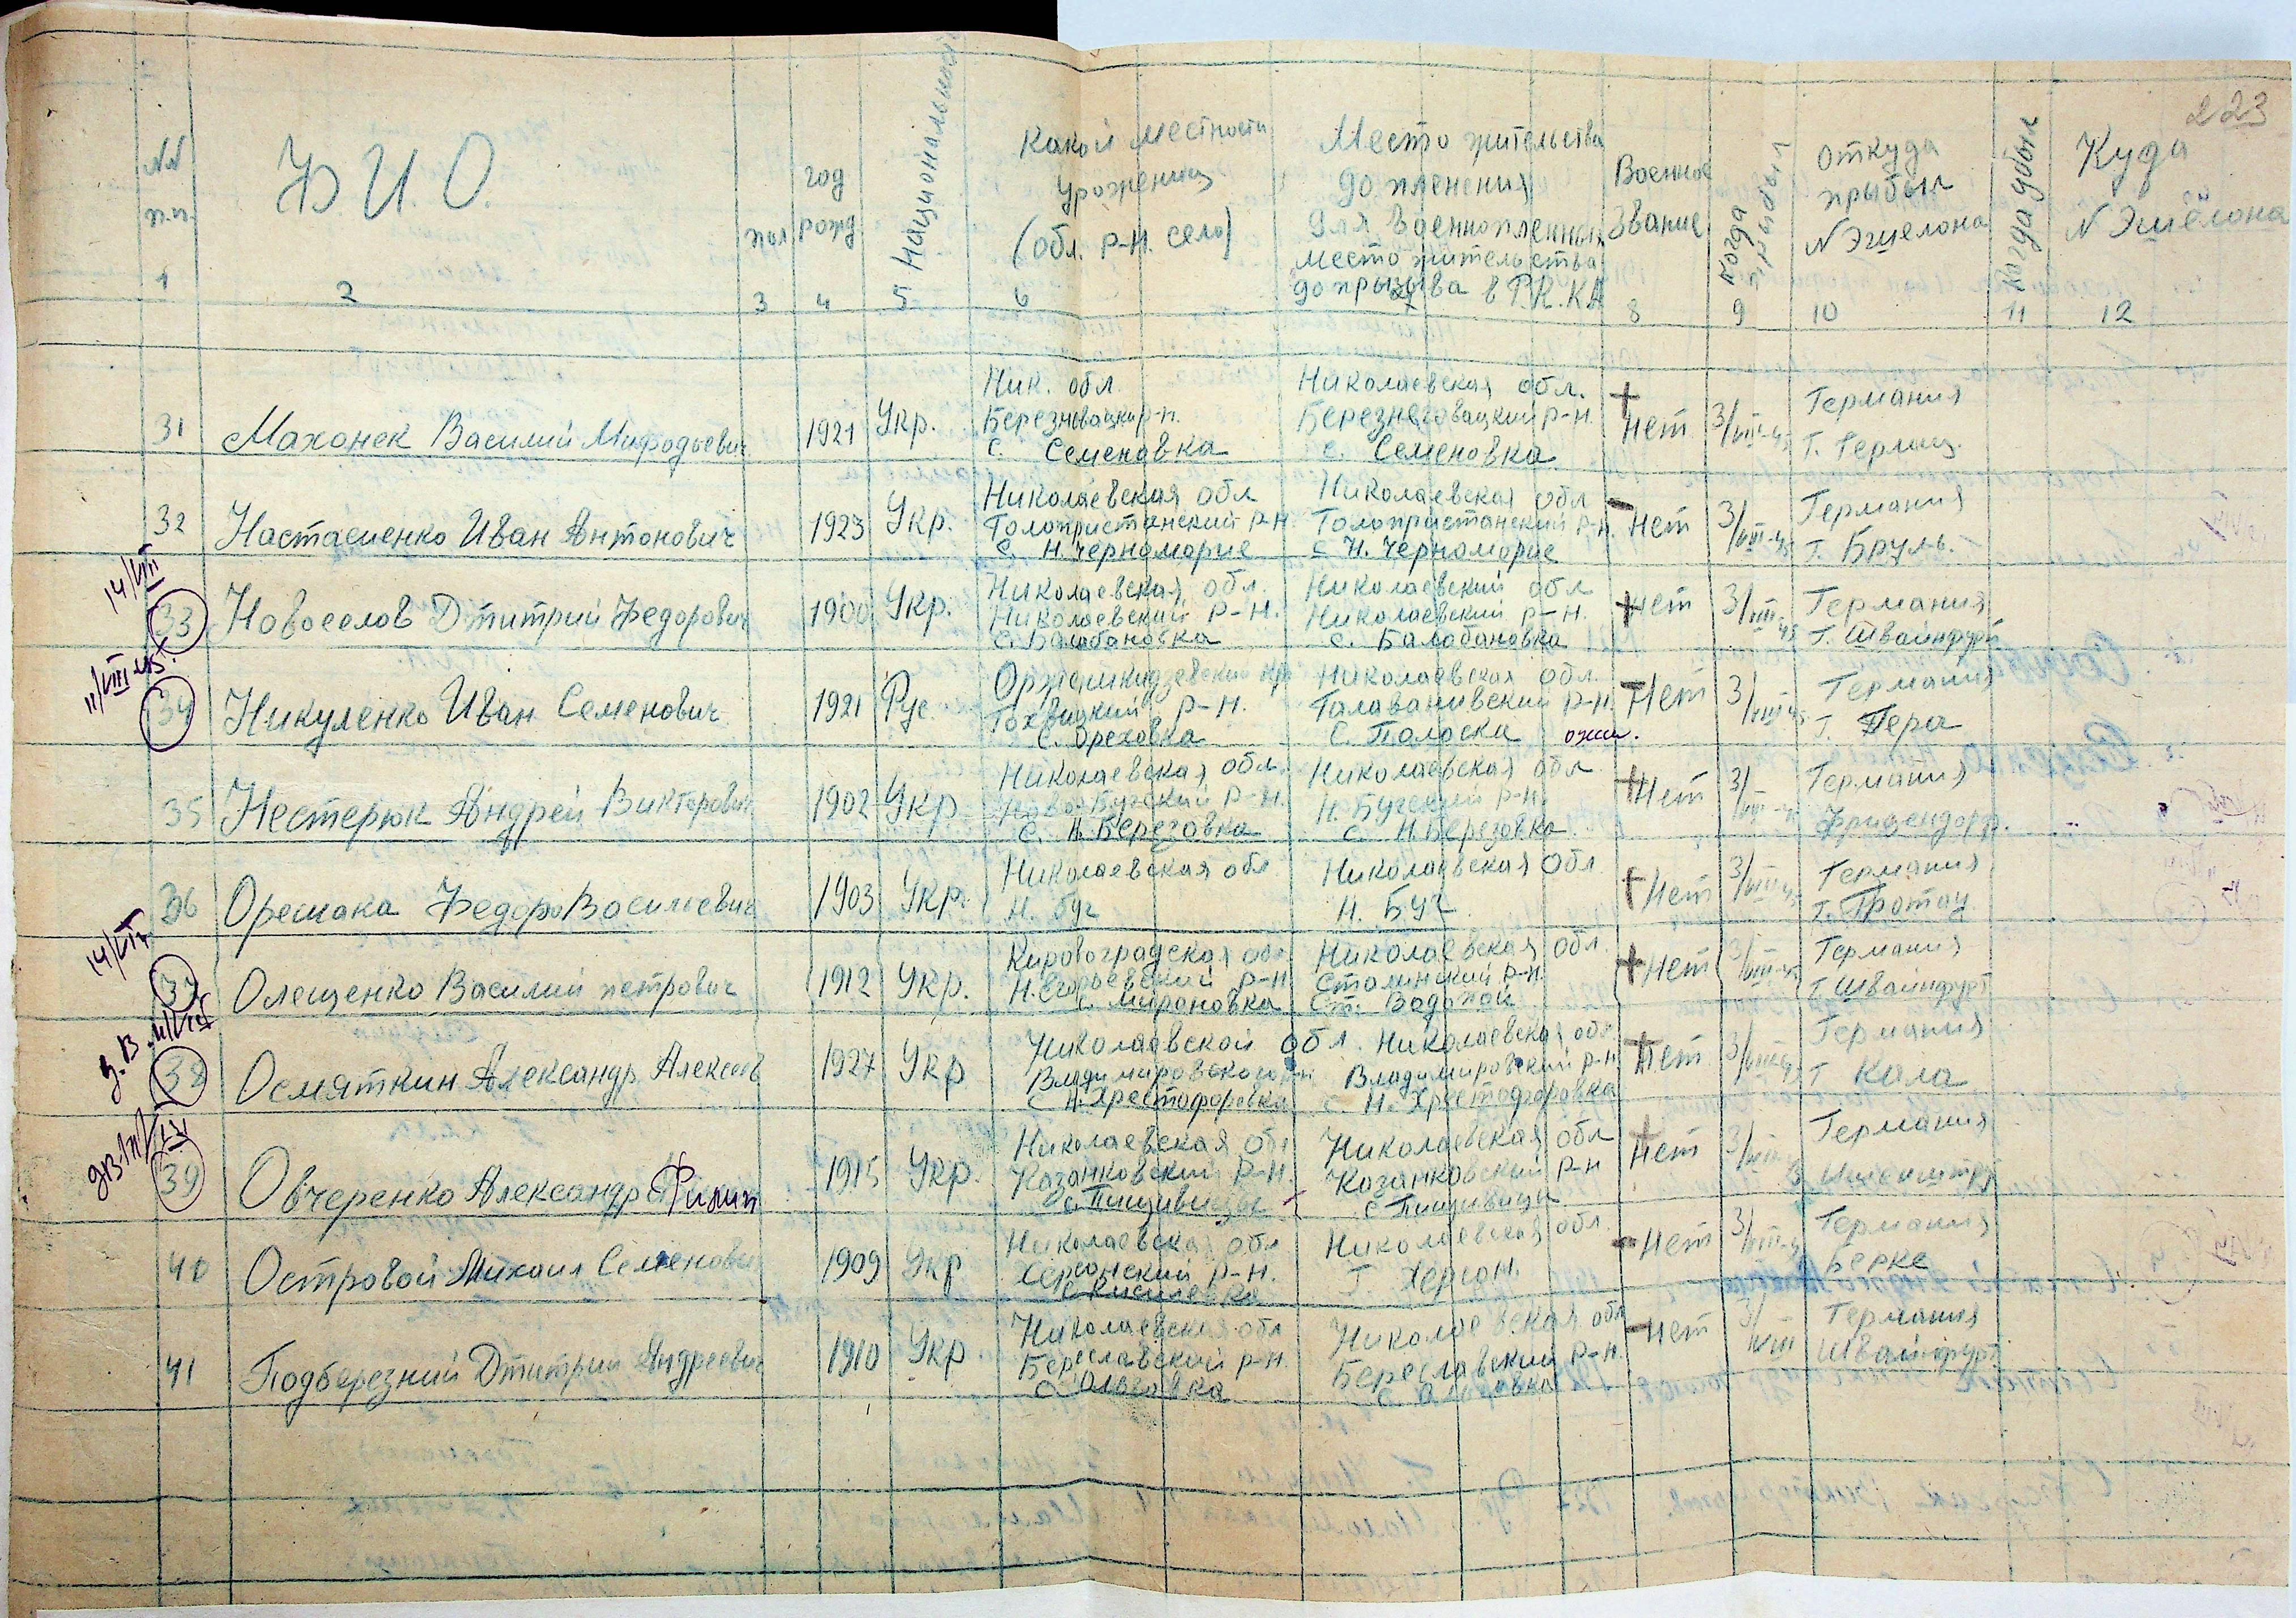 223
NN п.п.
Ф. И. О.
пол
год рожд
Национальность
Какой местности
Уроженец
(обл. р-н. село)
Место жительства
до пленения
для военнопленных
место жительства
до призыва в Р.К.КА
Военное
Звание
Когда прыбыл
Откуда
прыбыл
N Эшелона
Когда убыл
Куда
N Эшелона
1 2 3 4 5 6 7 8 9 10 11 12
Ник. обл. Николаевская обл. Германия
31 Махонек Василий Мифодьевич 1921 Укр. Березневацкир-н. Березнеговацкий р-н. + Нет 3/VIII-45 Г. Герлиц.
с. Семеновка с. Семеновка
Николаевская обл Николаевская обл Германия
32 Настасиенко Иван Антонович 1923 Укр. Голопристанский р-н. Голопристанский р-н. - Нет 3/VIII-45 Г. Бруль.
с. Н. Черноморие с Н. Черноморие
14/VIII
Николаевская обл. Николаевский обл Германия
33 Новоселов Дмитрий Федорович 1900 Укр. Николаевский р-н. Николаевский р-н. + Нет 3/VIII-45 Г. Швайнфурт
с. Балабановка с. Балабановка
11/VIII-45.
Орженикидзевский кр Николаевская обл. Германия
34 Никуленко Иван Семенович 1921 Рус. р-н. р-н. Нет 3/VIII-45 Г. Гера
с. Ореховка с. Полоски
Николаевская обл. Николаевская обл Германия
35 Нестерюк Андрей Викторович 1902 Укр Ново-Бугский р-н. Н. Бугский р-н. + Нет 3/VIII-45
с. Н. Березовка с. Н. Березовка
Николаевская обл Николаевская обл Германия
36 Оремака Федор Василиевич 1903 Укр. Н. Буг Н. Буг + Нет 3/VIII-45
14/VIII
Кировоградская обл Николаевская обл Германия
37 Олещенко Василий петрович 1912 Укр. р-н Сталинский р-н. + Нет 3/VIII-45 Г. Швайнфурт
с. Мироновка Ст. Водопой
д.в. 11/VIII
Николаевской обл. Николаевская обл Германия
38 Осмяткин Александр Алексеев 1927 Укр Владимировского р-н Владимировский р-н + Нет 3/VIII-45 Г Кала
с Н. Хрестофоровка с. Н. Хрестофоровка
Николаевская обл Николаевская обл Германия
39 Овчеренко Александр Филип 1915 Укр. Казанковский р-н. Козанковский р-н + Нет 3/VIII
Николаевская обл Николаевская обл. Германия
40 Островой Михаил Семенович 1909 Укр Херсонский р-н. Г Херсон. - Нет 3/VIII-45 Берке
с Киселевка
Николаевская обл Николаевская обл Германия
41 Подберезний Дмитрий Андреевич 1910 Укр Береславский р-н. Береславский р-н. - Нет 3/VIII Швайнфурт
с. Ольговка